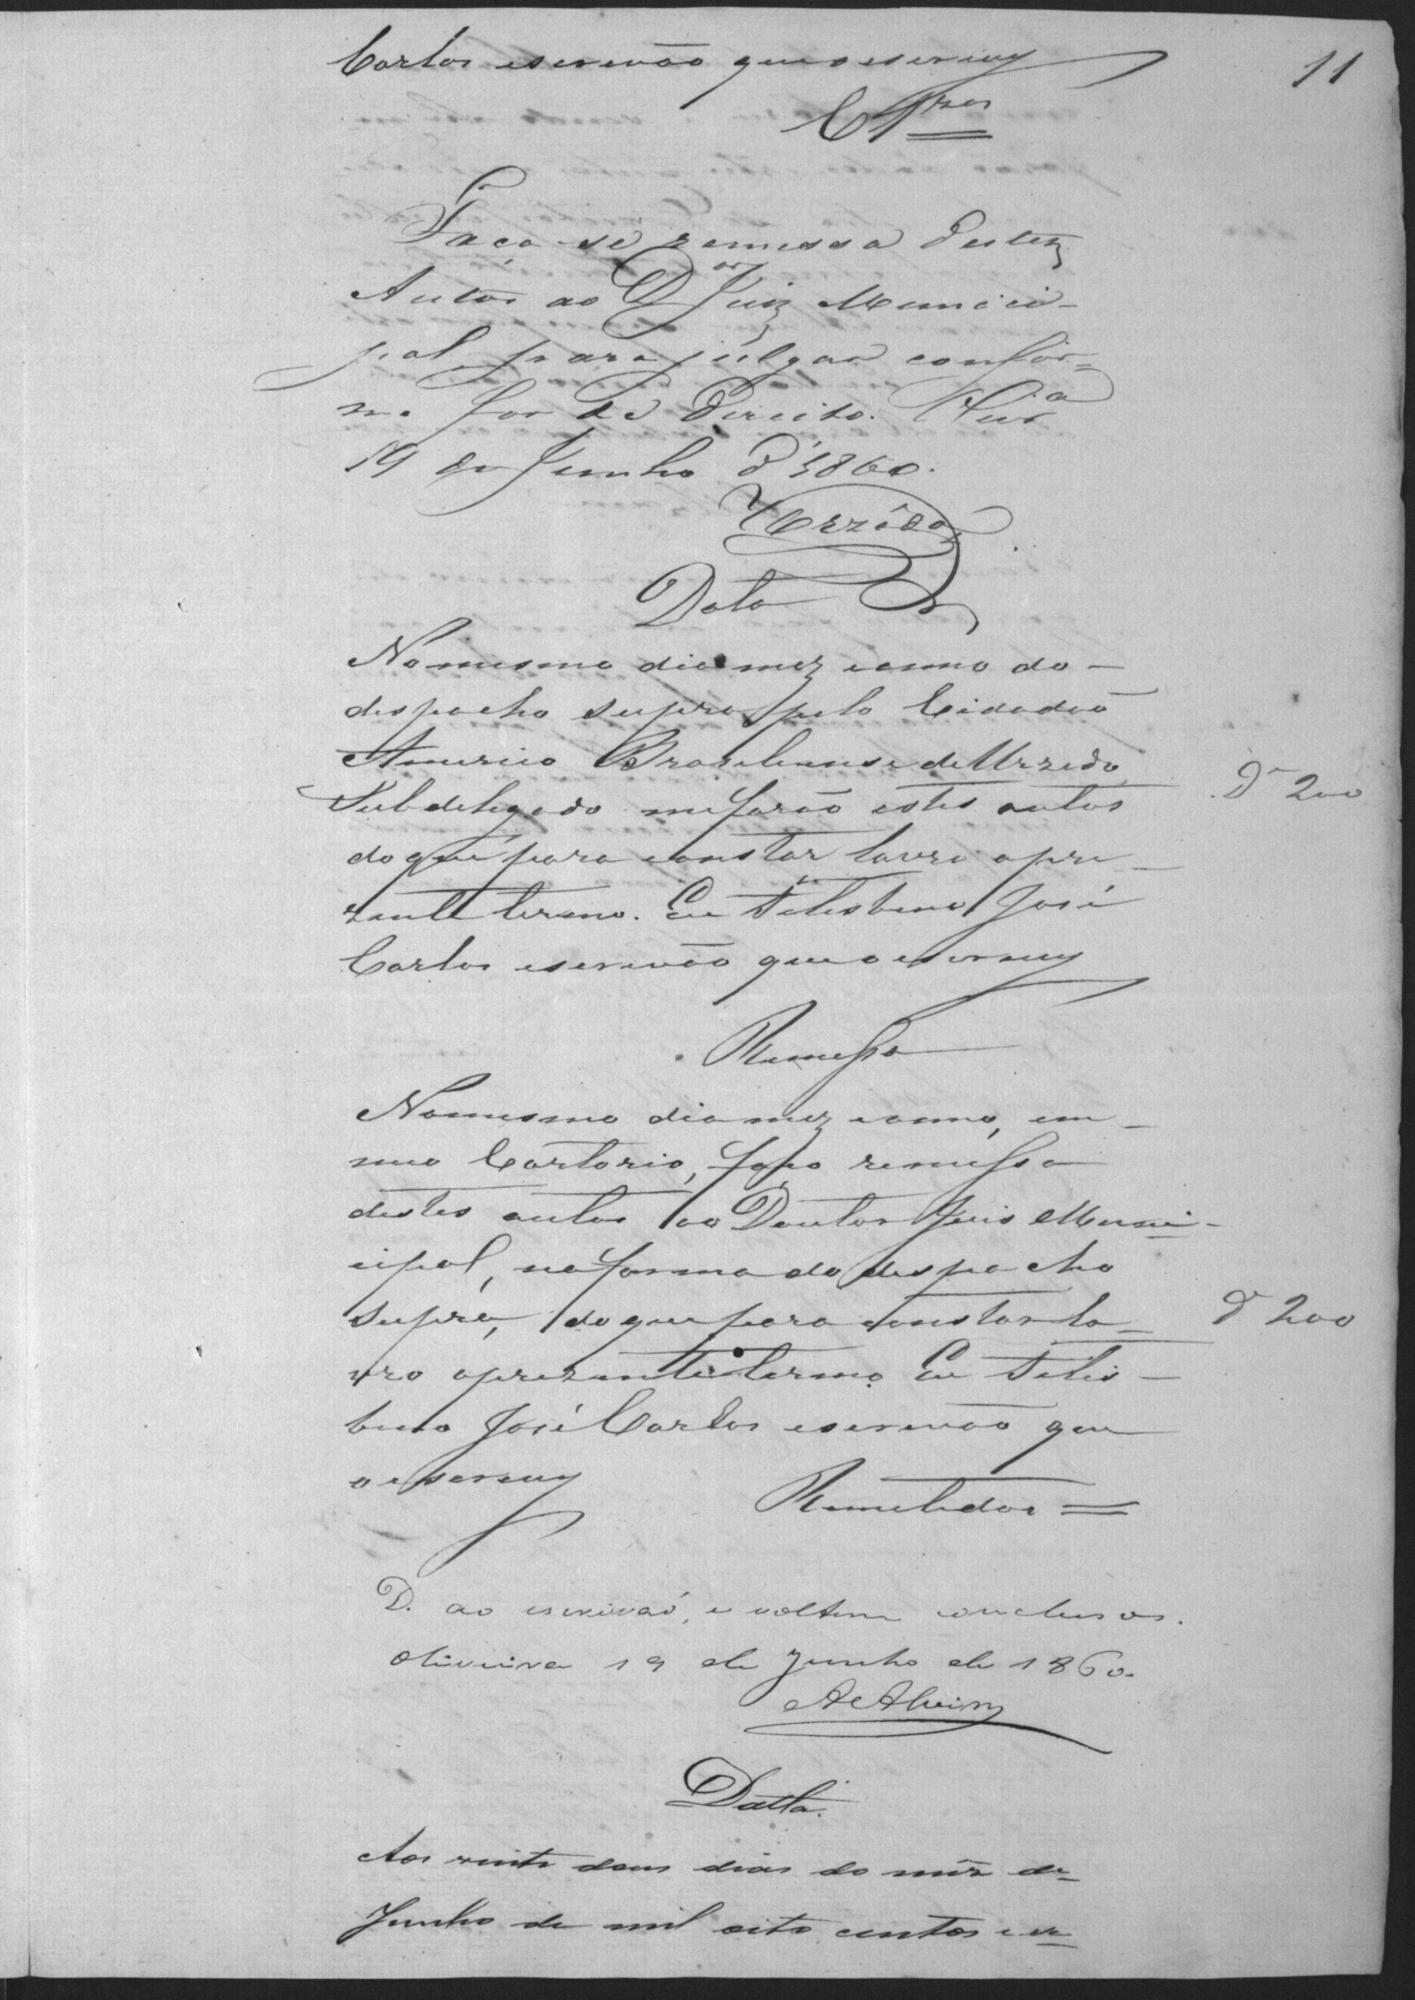 Carlos escrivão que o escrevy
11
Clzos
Faça-se remessa destes
Autos ao Dor Juiz Munici-
pal para julgar confor-
me for de Direito.
19 de Junho d'1860.
Urzêdo
Data
No mesmo dia mez e anno do
despacho supra pelo Cidadaõ
Americo Brasiliense de Urzedo
Subdelegado me forão estes autos
do que para constar lavro o pre-
zente termo. Eu Felisbino José
Carlos escrivão que o escrevy
Dr 200
Remessa
No mesmo dia mez e anno, em
meo Cartorio, faço remessa
destes autos ao Doutor Juis Muni-
cipal, na forma do despacho
supra, do que para constar la-
vro o prezente termo. Eu Felis-
bino José Carlos escrivão que
o escrevy
Dr 200
Remetidos =
D. ao escrivaõ, e voltem conclusos.
Oliveira 19 de Junho de 1860.
Data.
Aos vinte dous dias do mêz de
Junho de mil oito centos e se-